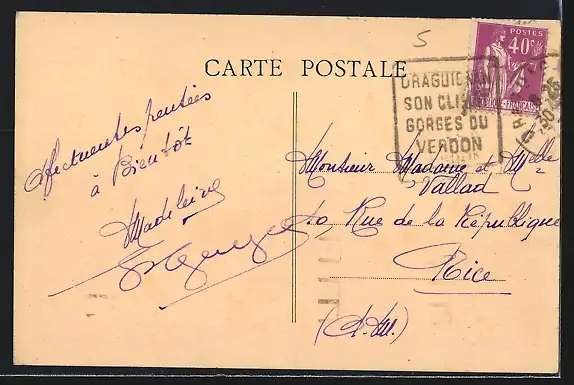 5
CARTE POSTALE
POSTES
40c
REPUBLIQUE FRANÇAISE
DRAGUIGNAN
SON CLIMAT
GORGES DU
VERDON
Affectueuses pensées
à Bientôt
Madeleine
Monsieur Madame et Melle
Vallad
10 Rue de la République
Nice
(A.M.)